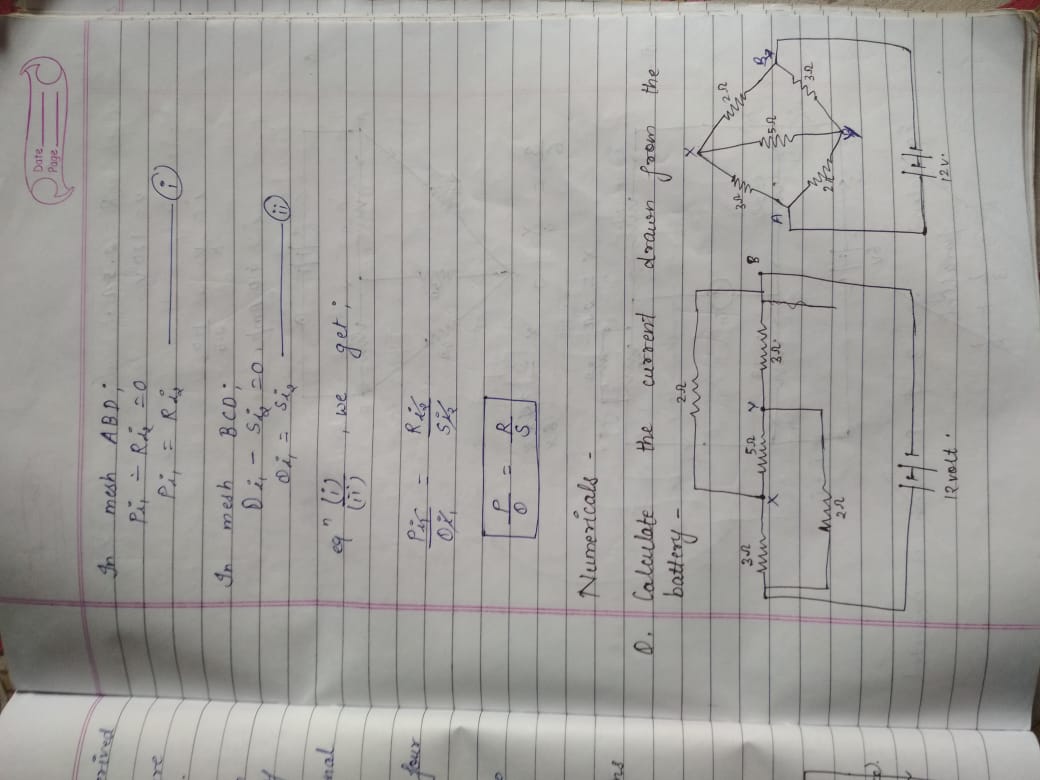 Date
Page
In mesh ABD;
Pi₁ – Ri₂ = 0
Pi₁ = Ri₂ ——— (i)
In mesh BCD;
Qi₁ – Si₂ = 0
Qi₁ = Si₂ ——— (ii)
eqⁿ (i)/(ii), we get;
Pi₁/Qi₁ = Ri₂/Si₂
P/Q = R/S
Numericals -
Q. Calculate the current drawn from the
battery -
2Ω
3Ω X 5Ω Y 3Ω B
2Ω
12volt.
X
3Ω 5Ω 2Ω
A B
2 3Ω
12v.
four